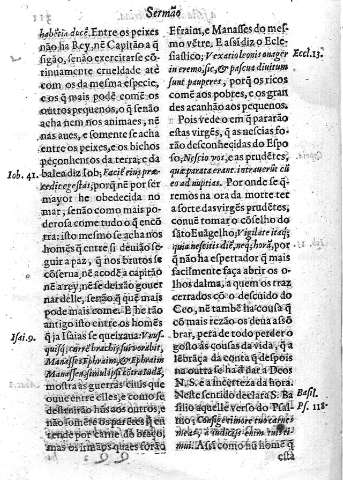 Sermão
habēria docē. Entre os peixes
não ha Rey, nē Capitão a q̃
sigão, senão exercitarse cõ-
tinuamente crueldade atè
com os da mesma especie,
e os q̃ mais podē comē os
outros pequenos, o q̃ senão
acha nem nos animaes, nē
nas aues, e somente se acha
entre os peixes, e os bichos
peçonhentos da terra; e da
Iob. 41.
balea diz Iob; Facit eius præ-
cedit egestas; porq̃ nē por ser
mayor he obedecida no
mar, senão como mais po-
derosa come tudo o q̃ encõ-
tra: isto mesmo se acha nos
homēs q̃ entre si deuião se-
guir a paz, q̃ nos brutos se
cõserua, nē acodē a capitão
nē a rey, nē se deixão gouer
nar delle, senão q̃ quē mais
pode mais come. E he tão
antigo isto entre os homēs
Isai. 9.
q̃ ja Isaias se queixaua:
Manasses Ephraim, & Ephraim
mostra as guerras ciuis que
ouue entre elles, e como se
destruirão hūs aos outros, e
não fomēte os parētes q̃ en
tende por carne do braço,
mas os irmãos quaes forão
Efraim, e Manasses do mes-
mo vētre. E assi diz o Ecle-
Eccl. 13.
siastico; Vexatio leonis onager
in eremo, sic, & pascua diuitum
sunt pauperes, porq̃ os ricos
comē aos pobres, e os gran
des acanhão aos pequenos.
Pois vede o em q̃ pararão
estas virgēs, q̃ as nescias fo-
rão desconhecidas do Espo
so; Nescio vos, e as prudētes,
quæ parata erant intrauerūt cū
eo ad nuptias. Por onde se q̃-
remos na ora da morte ter
a sorte das virgēs prudētes,
conuē tomar o cõselho do
sãto Euãgelho; Vigilate itaq;
quia nescitis diē, neq; horã, por
q̃ não ha espertador q̃ mais
facilmente faça abrir os o-
lhos dalma, a quem os traz
cerrados cõ o descuido do
Ceo, nē tambē ha cousa q̃
cõ mais rezão os deua assõ
brar, pera de todo perder o
gosto às cousas da vida, q̃ a
lēbrãça da conta q̃ despois
na outra se ha d dar a Deos
N. S. e a incerteza da hora.
Basil.
Neste sentido declara S. Ba
Ps. 118.
silio aquelle verso do Psal-
mo;
mea, à iudicijs enim tuis ti-
mui. Assi como hū homē q̃
està